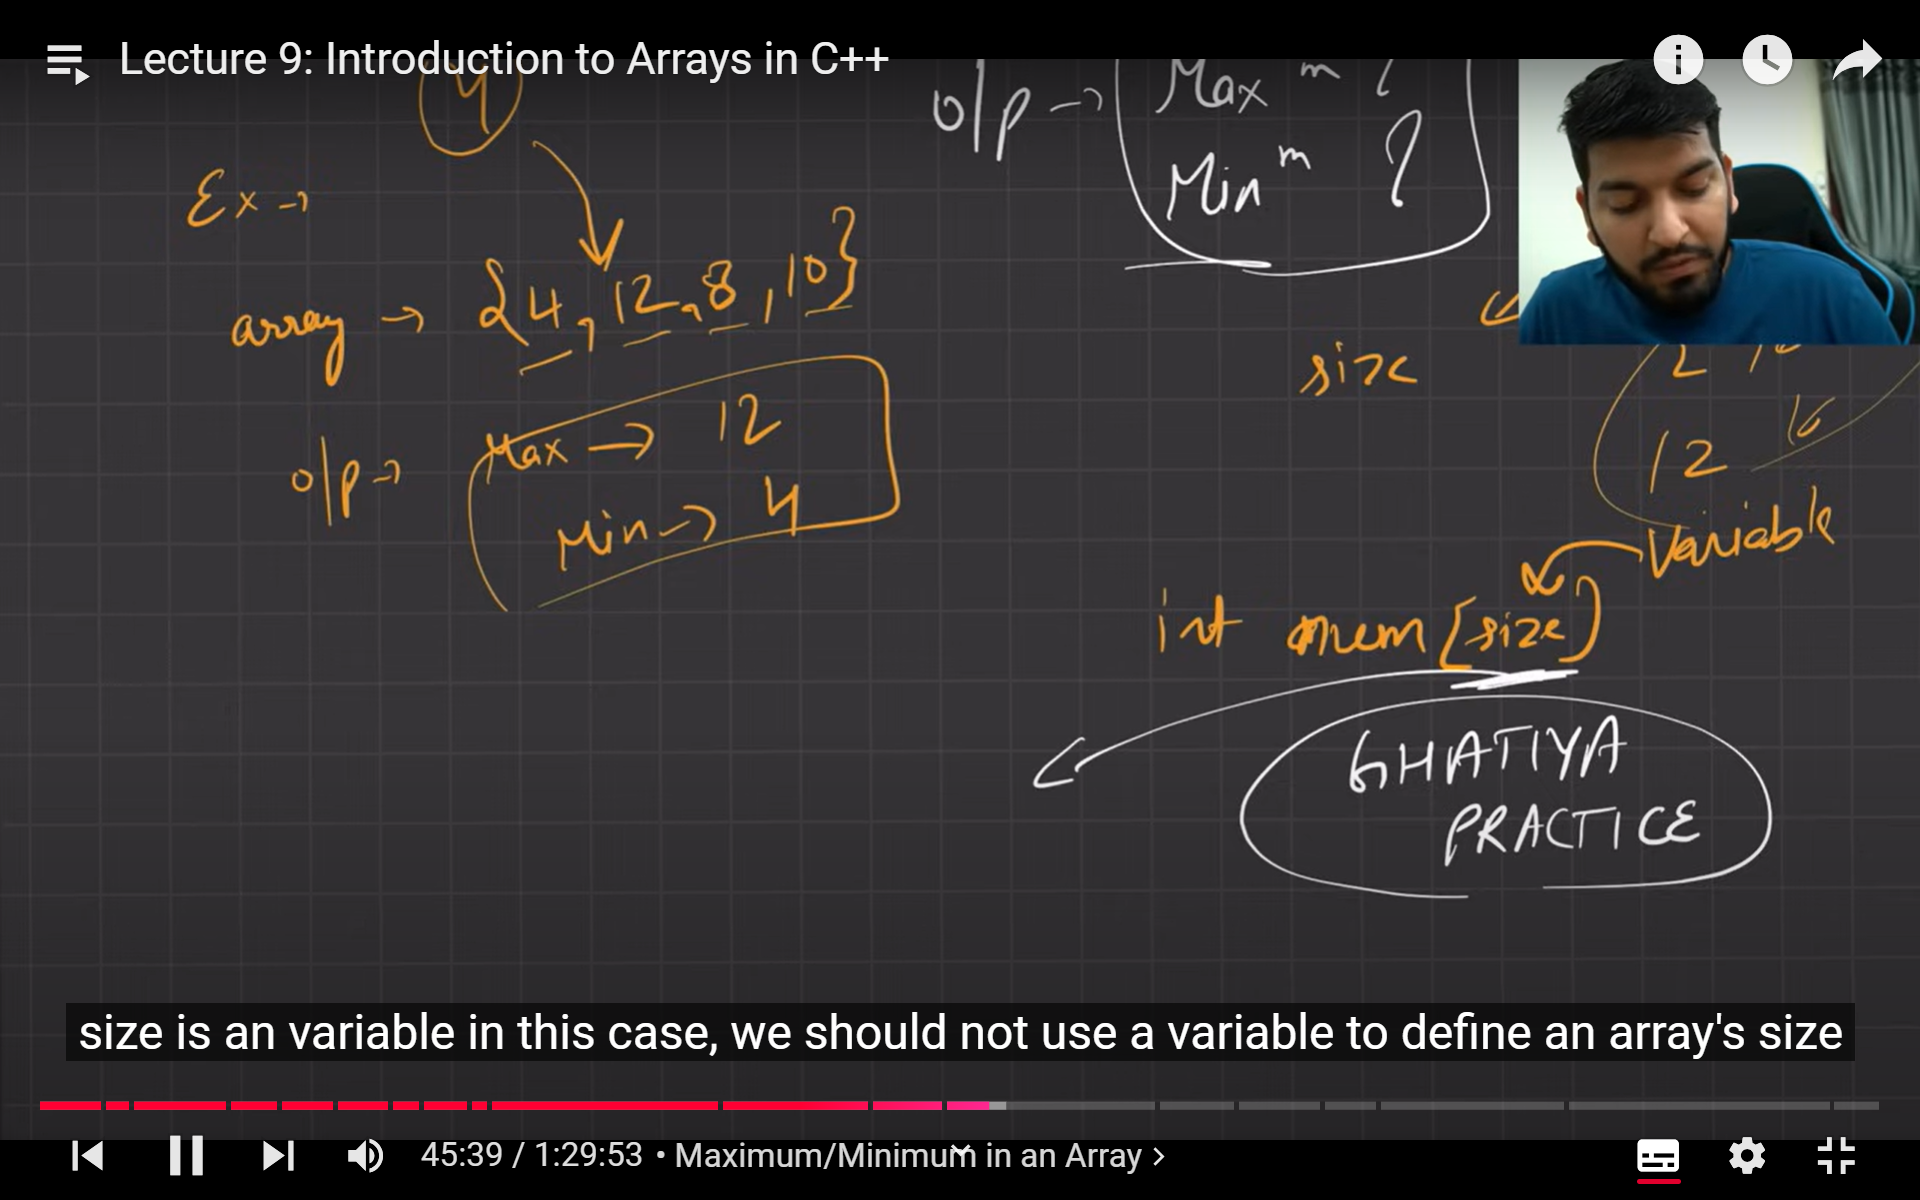 Lecture 9: Introduction to Arrays in C++
4
o/p → Max m ?
Min m ?
Ex →
array → {4, 12, 8, 10}
size
12 16
o/p → Max → 12
Min → 4
Variable
int num[size]
GHATIYA
PRACTICE
size is an variable in this case, we should not use a variable to define an array's size
45:39 / 1:29:53 • Maximum/Minimum in an Array >